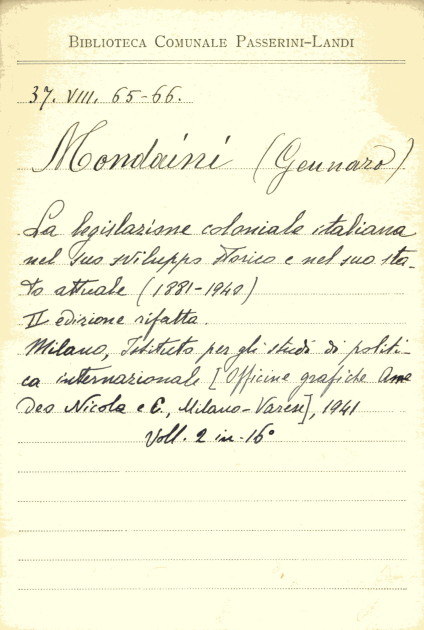 BIBLIOTECA COMUNALE PASSERINI-LANDI
37. VIII. 65-66.
Mondaini (Gennaro)
La legislazione coloniale italiana
nel suo sviluppo storico e nel suo sta-
to attuale (1881-1940)
II edizione rifatta.
Milano, Istituto per gli studi di politi-
ca internazionale [Officine grafiche Ame
deo Nicola e C., Milano-Varese], 1941
Voll. 2 in-16°